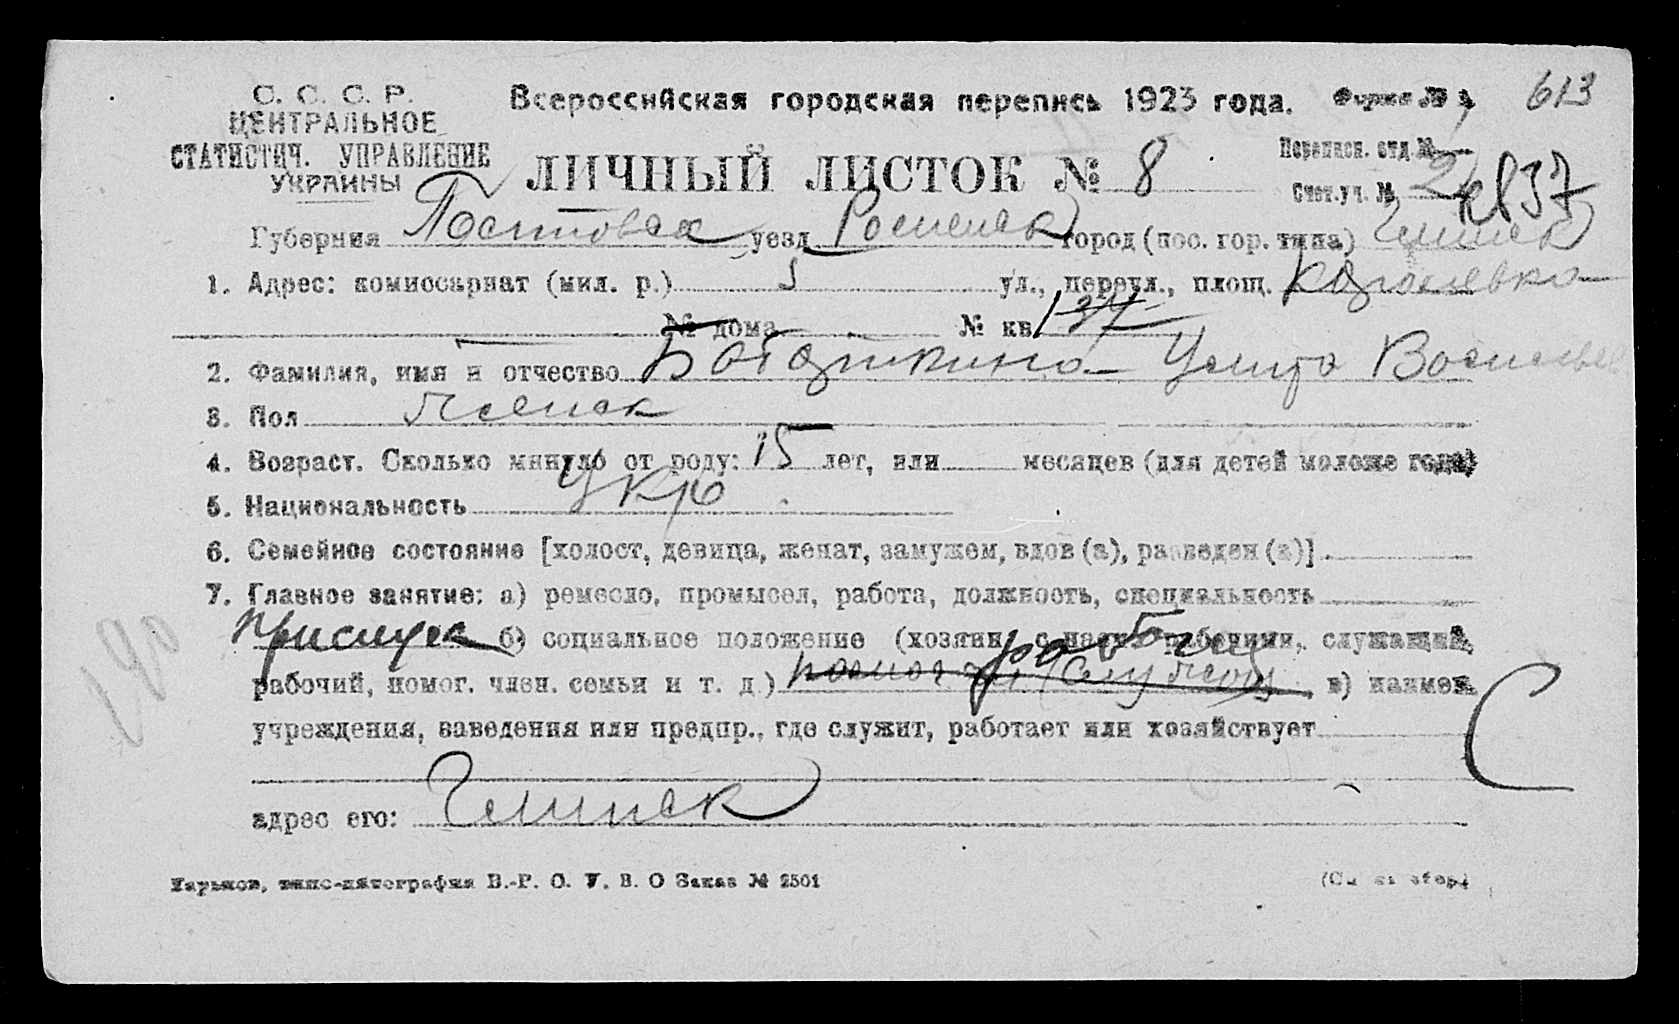 С. С. С. Р.
ЦЕНТРАЛЬНОЕ
СТАТИСТИЧ. УПРАВЛЕНИЕ
УКРАИНЫ
Всероссийская городская перепись 1923 года.
Форма № 3
613
ЛИЧНЫЙ ЛИСТОК № 8
Перепись. отд. №
Счет. уч. № 2
837
Губерния Полтовская уезд Роменск город (пос. гор. типа) Глинск
1. Адрес: комиссариат (мил. р.) 5 ул., переул., площ.
№ дома № кв. 137
2. Фамилия, имя и отчество
3. Пол Женск
4. Возраст. Сколько минуло от роду: 15 лет, или месяцев (для детей моложе года)
5. Национальность Укр
6. Семейное состояние [холост, девица, женат, замужем, вдов (а), разведен (а)]
7. Главное занятие: а) ремесло, промысел, работа, должность, специальность
прислуга б) социальное положение (хозяин с наемн. рабочими, служащий,
рабочий, помог. член. семьи и т. д.) рабочий в) наимен.
учреждения, заведения или предпр., где служит, работает или хозяйствует
С
адрес его: Глинск
190
Харьков, типо-литография В.-Р. О. У. В. О Заказ № 2501
(См. на обор.)